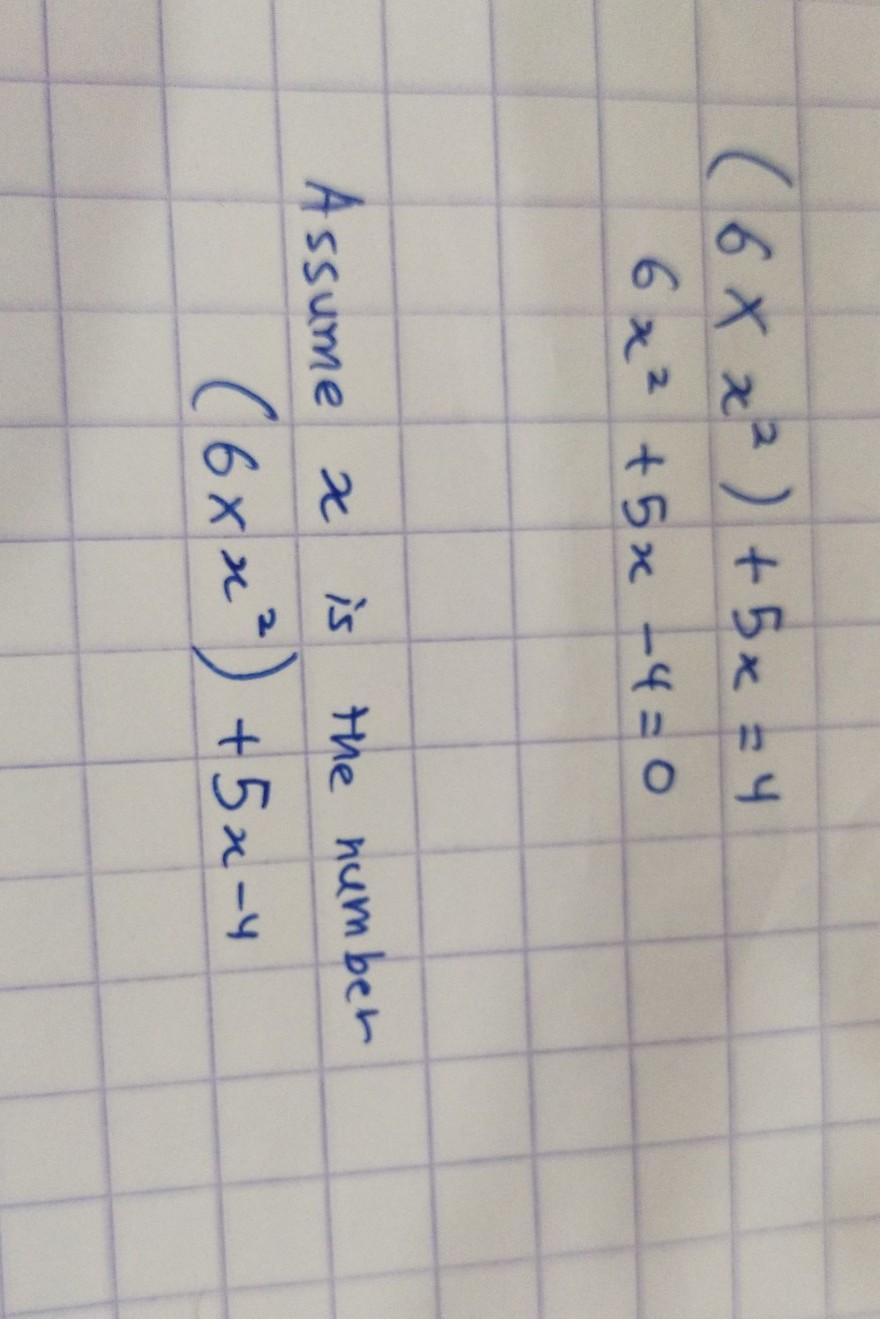 (6 × x²) + 5x = 4
6x² + 5x - 4 = 0
Assume x is the number
(6 × x²) + 5x - 4